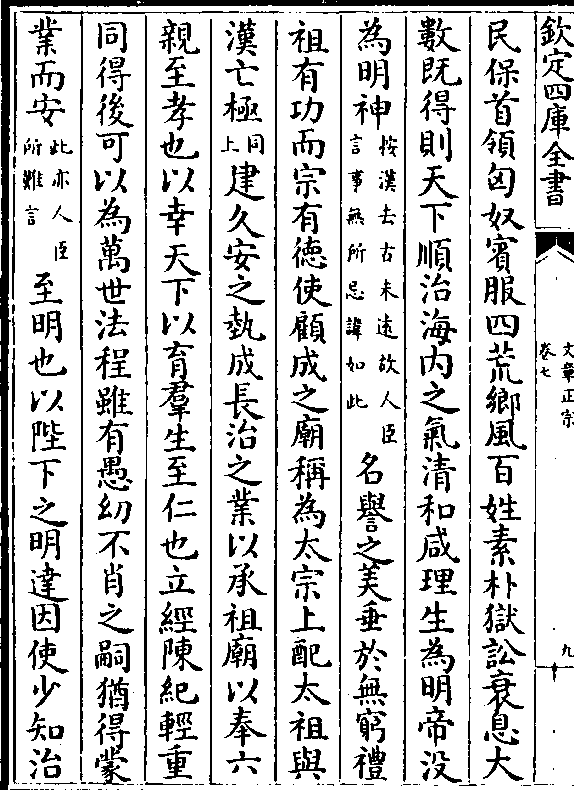 欽定四庫全書
文章正宗
卷七
九
民保首領匈奴賓服四荒鄉風百姓素朴獄訟衰息大
數既得則天下順治海内之氣清和咸理生為明帝没
為明神按漢去古未逺故人臣言事無所忌諱如此名譽之美垂於無窮禮
祖有功而宗有徳使顧成之廟稱為太宗上配太祖與
漢亡極同上建久安之埶成長治之業以承祖廟以奉六
親至孝也以幸天下以育羣生至仁也立經陳紀輕重
同得後可以為萬世法程雖有愚幼不肖之嗣猶得蒙
業而安此亦人臣所難言至明也以陛下之明達因使少知治